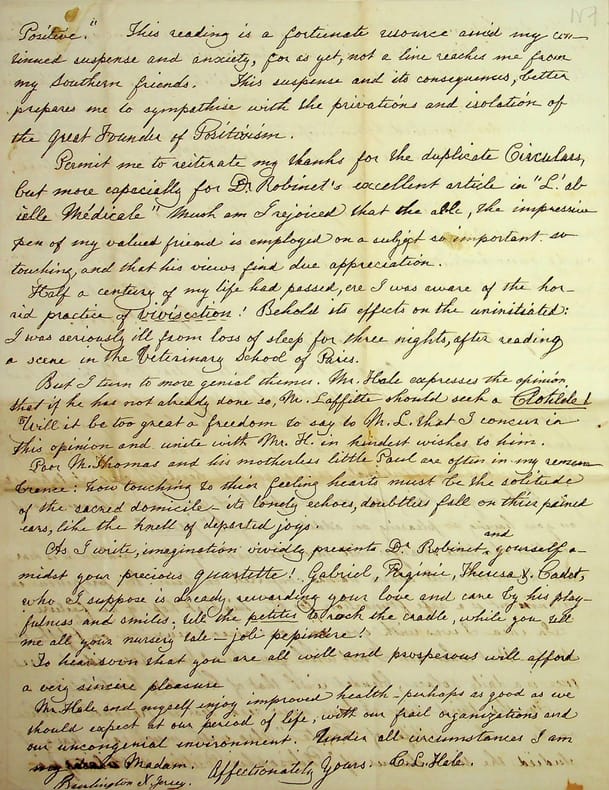 Positive." This reading is a fortunate resource amid my con-
tinued suspense and anxiety, for as yet, not a line reaches me from
my Southern friends. This suspense and its consequences, better
prepares me to sympathise with the privations and isolation of
the great Founder of Positivism.
Permit me to reiterate my thanks for the duplicate Circulars,
but more especially for Dr. Robinet's excellent article in "L'ab
eille Médicale" Much am I rejoiced that the able, the impressive
pen of my valued friend is employed on a subject so important so
touching, and that his views find due appreciation.
Half a century of my life had passed, ere I was aware of the hor-
rid practice of vivisection! Behold its effects on the uninitiated:
I was seriously ill from loss of sleep for three nights, after reading
a scene in the Veterinary School of Paris.
But I turn to more genial themes. Mr. Hale expresses the opinion
that if he has not already done so, M. Laffitte should seek a Clotilde!
Will it be too great a freedom to say to M. L. that I concur in
this opinion and unite with Mr. H. in kindest wishes to him.
Poor M. Thomas and his motherless little Paul are often in my remem
brence: how touching to their feeling hearts must be the solitude
of the sacred domicile - its lonely echoes, doubtless fall on their pained
ears, like the knell of departed joys.
As I write, imagination vividly presents Dr. Robinet and yourself a-
midst your precious quartette! Gabriel, Virginie, Theresa & Cadet,
who I suppose is already rewarding your love and care by his play-
fulness and smiles: tell the petites to rock the cradle, while you tell
me all your nursery tale - joli pepinière!
To hear soon that you are all well and prosperous will afford
a very sincere pleasure
Mr. Hale and myself enjoy improved health - perhaps as good as we
should expect at our period of life, with our frail organizations and
our uncongenial environment. Under all circumstances I am
my Madam. Affectionately Yours. C. L. Hale.
Burlington N. Jersey.